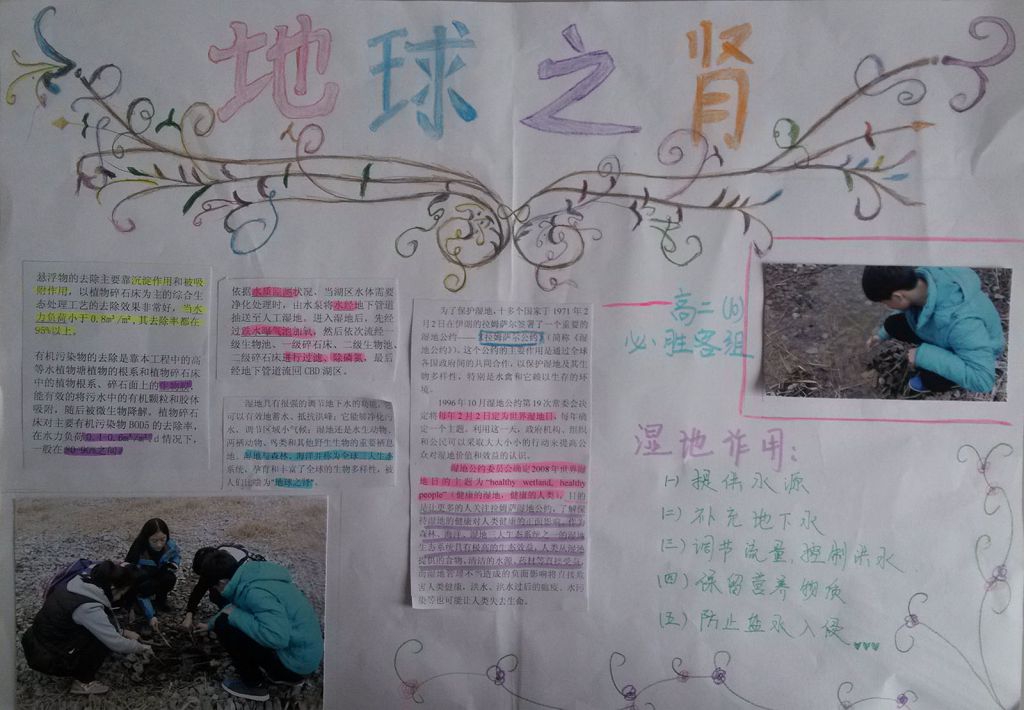 地球之肾
悬浮物的去除主要靠沉淀作用和被吸
附作用，以植物碎石床为主的综合生
态处理工艺的去除效果非常好，当水
力负荷小于0.8m³/m².其去除率都在
95%以上。
有机污染物的去除是靠本工程中的高
等水植物塘植物的根系和植物碎石床
中的植物根系、碎石面上的
能有效的将污水中的有机颗粒和胶体
吸附，随后被微生物降解。植物碎石
床对主要有机污染物BOD5的去除率，
在水力负荷 d情况下，
一般在80-90%之间。
依据水质监测状况，当湖区水体需要
净化处理时，由水泵将水经地下管道
抽送至人工湿地。进入湿地后，先经
过跌水曝气池加氧，然后依次流经一
级生物池、一级碎石床、二级生物池、
二级碎石床进行过滤、除磷氮，最后
经地下管道流回CBD湖区。
湿地具有很强的调节地下水的功能，它
可以有效地蓄水、抵抗洪峰；它能够净化污
水，调节区域小气候；湿地还是水生动物、
两栖动物、鸟类和其他野生生物的重要栖息
地。湿地与森林、海洋并称为全球三大生态
系统，孕育和丰富了全球的生物多样性，被
人们比喻为“地球之肾”。
为了保护湿地，十多个国家于1971年2
月2日在伊朗的拉姆萨尔签署了一个重要的
湿地公约——《拉姆萨尔公约》（简称《湿
地公约》）。这个公约的主要作用是通过全球
各国政府间的共同合作，以保护湿地及其生
物多样性，特别是水禽和它赖以生存的环
境。
1996年10月湿地公约第19次常委会决
定将每年2月2日定为世界湿地日，每年确
定一个主题。利用这一天，政府机构、组织
和公民可以采取大大小小的行动来提高公
众对湿地价值和效益的认识。
湿地公约委员会确定2008年世界湿
地日的主题为“healthy wetland, healthy
people”（健康的湿地，健康的人类），目的
是让更多的人关注拉姆萨湿地公约，了解保
持湿地的健康对人类健康的正面影响。作为
森林、海洋、湿地三大生态系统之一的湿地
生态系统具有极高的生态效益，人类从湿地
提供的食物、清洁的水源、药材等直接受益，
而湿地管理不当造成的负面影响将直接危
害人类健康，洪水、洪水过后的瘟疫、水污
染等也可能让人类失去生命。
高二（6）
必胜客组
湿地作用：
（一）提供水源
（二）补充地下水
（三）调节流量，控制洪水
（四）保留营养物质
（五）防止盐水入侵